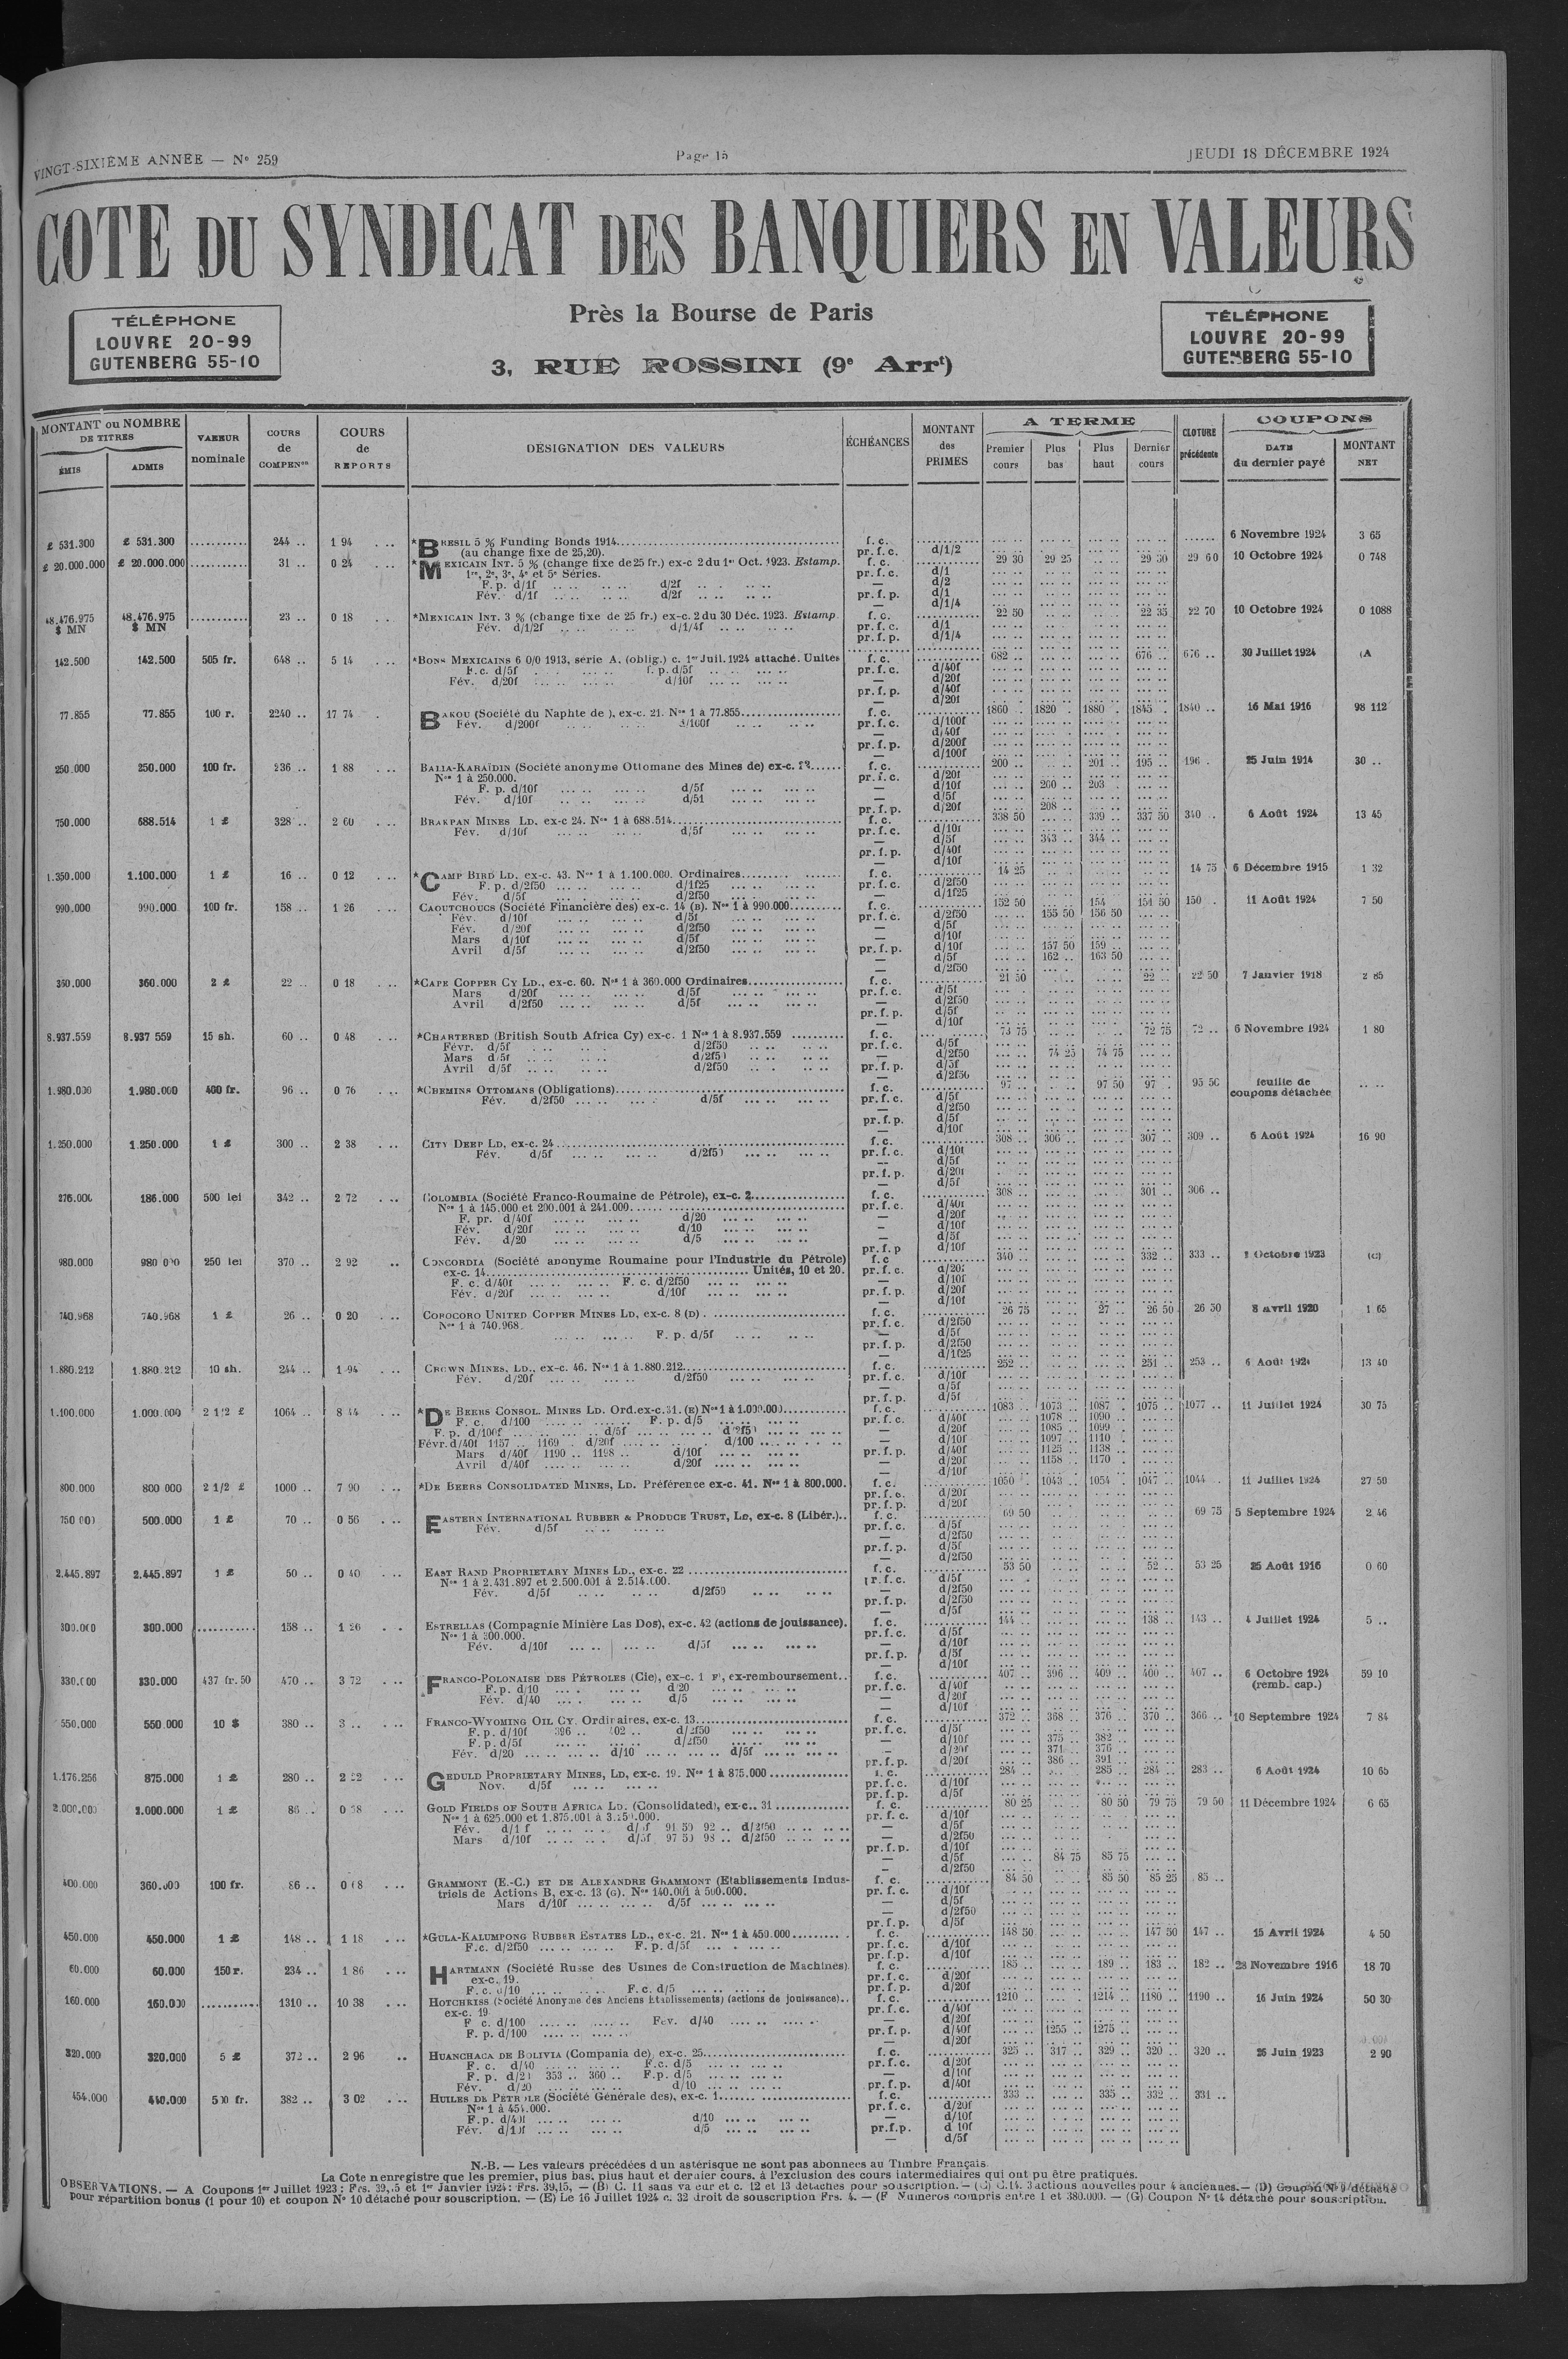 VINGT-SIXIÈME ANNÉE — N° 259
Page 15
JEUDI 18 DÉCEMBRE 1924
COTE DU SYNDICAT DES BANQUIERS EN VALEURS
Près la Bourse de Paris
3, RUE ROSSINI (9e Arrt)
TÉLÉPHONE
LOUVRE 20-99
GUTENBERG 55-10
TÉLÉPHONE
LOUVRE 20-99
GUTENBERG 55-10
MONTANT ou NOMBRE DE TITRES
ÉMIS
ADMIS
VALEUR nominale
COURS de COMPENon
COURS de REPORTS
DÉSIGNATION DES VALEURS
ÉCHÉANCES
MONTANT des PRIMES
A TERME
Premier cours
Plus bas
Plus haut
Dernier cours
CLOTURE précédente
COUPONS
DATE du dernier payé
MONTANT NET
£ 531.300 £ 531.300 244 .. 1 94 *BRESIL 5 % Funding Bonds 1914 f. c. 6 Novembre 1924 3 65
(au change fixe de 25,20). pr. f. c. d/1/2
£ 20.000.000 £ 20.000.000 31 .. 0 24 *MEXICAIN INT. 5 % (change fixe de 25 fr.) ex-c 2 du 1er Oct. 1923. Estamp. f. c. 29 30 29 25 29 30 29 60 10 Octobre 1924 0 748
1re, 2e, 3e, 4e et 5e Séries. pr. f. c. d/1
F. p. d/1f d/2f — d/2
Fév. d/1f d/2f pr. f. p. d/1
— d/1/4
48.476.975 $ MN 48.476.975 $ MN 23 .. 0 18 *MEXICAIN INT. 3 % (change fixe de 25 fr.) ex-c. 2 du 30 Déc. 1923. Estamp. f. c. 22 50 22 35 22 70 10 Octobre 1924 0 1088
Fév. d/1/2f d/1/4f pr. f. c. d/1
pr. f. p. d/1/4
142.500 142.500 505 fr. 648 .. 5 14 *BONS MEXICAINS 6 0/0 1913, série A. (oblig.) c. 1er Juil. 1924 attaché. Unités f. c. 682 .. 676 .. 676 .. 30 Juillet 1924 (A
F.c. d/5f f. p. d/5f pr. f. c. d/40f
Fév. d/20f d/10f — d/20f
pr. f. p. d/40f
— d/20f
77.855 77.855 100 r. 2240 .. 17 74 BAKOU (Société du Naphte de), ex-c. 21. Nos 1 à 77.855 f. c. 1860 .. 1820 .. 1880 .. 1845 .. 1840 .. 16 Mai 1916 98 112
Fév. d/200f d/100f pr. f. c. d/100f
— d/40f
pr. f. p. d/200f
— d/100f
250.000 250.000 100 fr. 236 .. 1 88 BALIA-KARAÏDIN (Société anonyme Ottomane des Mines de) ex-c. f. c. 200 .. 201 .. 195 .. 196 . 25 Juin 1914 30 ..
Nos 1 à 250.000. pr. f. c. d/20f
F. p. d/10f d/5f — d/10f 200 .. 203 .
Fév. d/10f d/5f — d/5f
pr. f. p. d/20f 208 ..
750.000 688.514 1 £ 328 .. 2 60 BRAKPAN MINES LD, ex-c 24. Nos 1 à 688.514 f. c. 338 50 339 .. 337 50 340 .. 6 Août 1924 13 45
Fév. d/10f d/5f pr. f. c. d/10f
— d/5f 343 .. 344 ..
pr. f. p. d/40f
— d/10f
1.350.000 1.100.000 1 £ 16 .. 0 12 *CAMP BIRD LD, ex-c. 43. Nos 1 à 1.100.000. Ordinaires f. c. 14 25 14 75 6 Décembre 1915 1 32
F. p. d/2f50 d/1f25 pr. f. c. d/2f50
Fév. d/5f d/2f50 — d/1f25
990.000 990.000 100 fr. 158 .. 1 26 CAOUTCHOUCS (Société Financière des) ex-c. 14 (B). Nos 1 à 990.000 f. c. 152 50 154 151 50 150 . 11 Août 1924 7 50
Fév. d/10f d/5f pr. f. c. d/2f50 155 50 156 50
Fév. d/20f d/2f50 — d/5f
Mars d/10f d/5f — d/10f
Avril d/5f d/2f50 pr. f. p. d/10f 157 50 159 ..
— d/5f 162 .. 163 50
— d/2f50
360.000 360.000 2 £ 22 .. 0 18 *CAPE COPPER CY LD., ex-c. 60. Nos 1 à 360.000 Ordinaires f. c. 21 50 22 .. 22 50 7 Janvier 1918 2 85
Mars d/20f d/5f pr. f. c. d/5f
Avril d/2f50 d/5f — d/2f50
pr. f. p. d/5f
— d/10f
8.937.559 8.937 559 15 sh. 60 .. 0 48 *CHARTERED (British South Africa Cy) ex-c. 1 Nos 1 à 8.937.559 f. c. 73 75 72 75 72 .. 6 Novembre 1924 1 80
Févr. d/5f d/2f50 pr. f. c. d/5f
Mars d/5f d/2f50 — d/2f50 74 25 74 75
Avril d/5f d/2f50 pr. f. p. d/5f
— d/2f50
1.980.000 1.980.000 400 fr. 96 .. 0 76 *CHEMINS OTTOMANS (Obligations) f. c. 97 .. 97 50 97 . 95 50 feuille de coupons détachée
Fév. d/2f50 d/5f pr. f. c. d/5f
— d/2f50
pr. f. p. d/5f
— d/10f
1.250.000 1.250.000 1 £ 300 .. 2 38 CITY DEEP LD, ex-c. 24 f. c. 308 .. 306 .. 307 .. 309 .. 6 Août 1924 16 90
Fév. d/5f d/2f50 pr. f. c. d/10f
— d/5f
pr. f. p. d/20f
— d/5f
276.000 186.000 500 lei 342 .. 2 72 COLOMBIA (Société Franco-Roumaine de Pétrole), ex-c. 2 f. c. 308 .. 301 .. 306 ..
Nos 1 à 145.000 et 200.001 à 241.000 pr. f. c. d/40f
F. pr. d/40f d/20 — d/20f
Fév. d/20f d/10 — d/10f
Fév. d/20 d/5 — d/5f
pr. f. p d/10f
980.000 980 000 250 lei 370 .. 2 92 CONCORDIA (Société anonyme Roumaine pour l'Industrie du Pétrole) f. c 340 .. 332 .. 333 .. 1 Octobre 1923 (C)
ex-c. 14 Unités, 10 et 20. pr. f. c. d/20f
F. c. d/40f F. c. d/2f50 — d/10f
Fév. d/20f d/10f pr. f. p. d/20f
— d/10f
740.968 740.968 1 £ 26 .. 0 20 COROCORO UNITED COPPER MINES LD, ex-c. 8 (D) f. c. 26 75 27 .. 26 50 26 50 8 Avril 1920 1 65
Nos 1 à 740.968. pr. f. c. d/2f50
F. p. d/5f — d/5f
pr. f. p. d/2f50
— d/1f25
1.880.212 1.880.212 10 sh. 244 .. 1 94 CROWN MINES, LD., ex-c. 46. Nos 1 à 1.880.212 f. c. 252 .. 251 .. 253 .. 6 Août 1924 13 40
Fév. d/20f d/2f50 pr. f. c. d/10f
— d/5f
pr. f. p. d/5f
1.100.000 1.000.000 2 1/2 £ 1064 .. 8 44 *DE BEERS CONSOL. MINES LD. Ord. ex-c. 31. (E) Nos 1 à 1.000.000 f. c. 1083 .. 1073 .. 1087 . 1075 .. 1077 .. 11 Juillet 1924 30 75
F. c. d/100 F. p. d/5 pr. f. c. d/40f 1078 .. 1090 ..
F. p. d/100f d/5f d/2f50 — d/20f 1085 .. 1099 ..
Févr. d/40f 1157 .. 1169 . d/20f d/100 — d/10f 1097 .. 1110 ..
Mars d/40f 1190 .. 1198 .. d/10f pr. f. p. d/40f 1125 .. 1138 ..
Avril d/40f d/20f — d/20f 1158 .. 1170 ..
— d/10f
800.000 800 000 2 1/2 £ 1000 .. 7 90 *DE BEERS CONSOLIDATED MINES, LD. Préférence ex-c. 41. Nos 1 à 800.000. f. c. 1050 . 1043 .. 1054 .. 1047 .. 1044 . 11 Juillet 1924 27 50
pr. f. c. d/20f
pr. f. p. d/20f
750 000 500.000 1 £ 70 .. 0 56 EASTERN INTERNATIONAL RUBBER & PRODUCE TRUST, LD, ex-c. 8 (Libér.).. f. c. 69 50 69 75 5 Septembre 1924 2 46
Fév. d/5f pr. f. c. d/5f
— d/2f50
pr. f. p. d/5f
— d/2f50
2.445.897 2.445.897 1 £ 50 .. 0 40 EAST RAND PROPRIETARY MINES LD., ex-c. 22 f. c. 53 50 52 .. 53 25 25 Août 1916 0 60
Nos 1 à 2.431.897 et 2.500.001 à 2.514.000. pr. f. c. d/5f
Fév. d/5f d/2f50 — d/2f50
pr. f. p. d/2f50
— d/5f
300.000 300.000 158 .. 1 26 ESTRELLAS (Compagnie Minière Las Dos), ex-c. 42 (actions de jouissance). f. c. 144 .. 138 .. 143 .. 4 Juillet 1924 5 ..
Nos 1 à 300.000. pr. f. c. d/5f
Fév. d/10f d/5f — d/10f
pr. f. p. d/5f
— d/10f
330.000 330.000 437 fr. 50 470 .. 3 72 FRANCO-POLONAISE DES PÉTROLES (Cie), ex-c. 1 F, ex-remboursement.. f. c. 407 .. 396 .. 409 .. 400 .. 407 .. 6 Octobre 1924 59 10
F. p. d/10 d/20 pr. f. c. d/40f (remb. cap.)
Fév. d/40 d/5 — d/20f
— d/10f
550.000 550.000 10 $ 380 .. 3 .. FRANCO-WYOMING OIL CY. Ordinaires, ex-c. 13 f. c. 372 .. 368 .. 376 .. 370 .. 366 .. 10 Septembre 1924 7 84
F. p. d/10f 396 .. 402 .. d/2f50 pr. f. c. d/5f
F. p. d/5f d/2f50 — d/10f 375 .. 382 ..
Fév. d/20 d/10 d/5f — d/20f 371 .. 376 ..
pr. f. p. d/20f 386 .. 391 ..
1.176.256 875.000 1 £ 280 .. 2 22 GEDULD PROPRIETARY MINES, LD, ex-c. 19. Nos 1 à 875.000 f. c. 284 .. 285 .. 284 .. 283 .. 6 Août 1924 10 65
Nov. d/5f pr. f. c. d/10f
pr. f. p. d/5f
2.000.000 2.000.000 1 £ 86 .. 0 68 GOLD FIELDS OF SOUTH AFRICA LD. (Consolidated), ex-c.. 31 f. c. 80 25 80 50 79 75 79 50 11 Décembre 1924 6 65
Nos 1 à 625.000 et 1.875.001 à 3.250.000. pr. f. c. d/10f
Fév. d/1 f d/5f 91 50 92 .. d/2f50 — d/5f
Mars d/10f d/5f 97 50 98 .. d/2f50 — d/2f50
pr. f. p. d/10f
— d/5f 84 75 85 75
— d/2f50
400.000 360.000 100 fr. 86 .. 0 68 GRAMMONT (E.-C.) ET DE ALEXANDRE GRAMMONT (Etablissements Indus- f. c. 84 50 85 50 85 25 85 ..
triels de Actions B, ex-c. 13 (G). Nos 140.001 à 500.000. pr. f. c. d/10f
Mars d/10f d/5f — d/5f
— d/2f50
pr. f. p. d/5f
450.000 450.000 1 £ 148 .. 1 18 *GULA-KALUMPONG RUBBER ESTATES LD., ex-c. 21. Nos 1 à 450.000 f. c. 148 50 147 50 147 .. 15 Avril 1924 4 50
F.c. d/2f50 F. p. d/5f pr. f. c. d/10f
pr. f. p. d/10f
60.000 60.000 150 r. 234 .. 1 86 HARTMANN (Société Russe des Usines de Construction de Machines). f. c. 185 .. 189 .. 183 .. 182 .. 28 Novembre 1916 18 70
ex-c. 19. pr. f. c. d/20f
F. c. d/10 F. c. d/5 pr. f. p. d/20f
160.000 160.000 1310 .. 10 38 HOTCHKISS (Société Anonyme des Anciens Etablissements) (actions de jouissance).. f. c. 1210 .. 1214 .. 1180 .. 1190 .. 16 Juin 1924 50 30
ex-c. 19 pr. f. c. d/40f
F c. d/100 Fév. d/40 — d/20f
F. p. d/100 pr. f. p. d/40f 1255 .. 1275 ..
— d/20f
320.000 320.000 5 £ 372 .. 2 96 HUANCHACA DE BOLIVIA (Compania de), ex-c. 25 f. c. 325 .. 317 .. 329 .. 320 .. 320 .. 26 Juin 1923 2 90
F. c. d/40 F.c. d/5 pr. f. c. d/20f
F. p. d/20 353 .. 360 .. F.p. d/5 — d/10f
Fév. d/20 d/10 pr. f. p. d/40f
454.000 440.000 500 fr. 382 .. 3 02 HUILES DE PETROLE (Société Générale des), ex-c. 1 f. c. 333 .. 335 .. 332 .. 331 ..
Nos 1 à 454.000. pr. f. c. d/20f
F.p. d/40f d/10 — d/10f
Fév. d/10f d/5 pr.f.p. d 10f
— d/5f
N.-B. — Les valeurs précédées d'un astérisque ne sont pas abonnées au Timbre Français.
La Cote n'enregistre que les premier, plus bas, plus haut et dernier cours, à l'exclusion des cours intermédiaires qui ont pu être pratiqués.
OBSERVATIONS. — A Coupons 1er Juillet 1923 : Frs. 39, 5 et 1er Janvier 1924 : Frs. 39,15, — (B) C. 11 sans valeur et c. 12 et 13 détachés pour souscription. — (C) C.14. 3 actions nouvelles pour 4 anciennes. — (D) Coupon N° 9 détaché
pour répartition bonus (1 pour 10) et coupon N° 10 détaché pour souscription. — (E) Le 16 Juillet 1924 c. 32 droit de souscription Frs. 4. — (F Numéros compris entre 1 et 380.000. — (G) Coupon N° 14 détaché pour souscription.